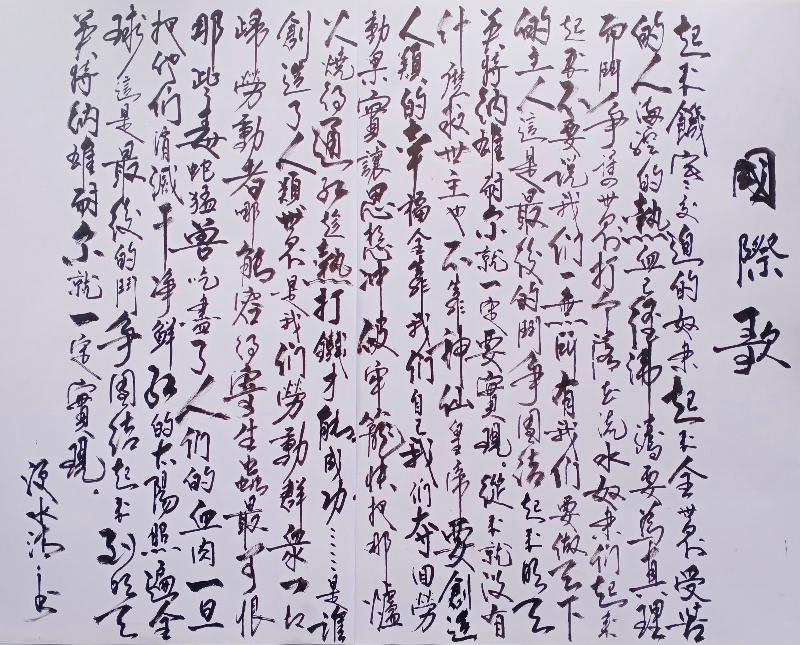 國際歌
起来饑寒交迫的奴隶起来全世界受苦
的人满腔的熱血已經沸騰要爲真理
而鬥争舊世界打个落花流水奴隶们起来
起来不要说我们一無所有我们要做天下
的主人這是最後的鬥争團结起来明天
英特纳雄耐尔就一定要實現。從来就没有
什麽救世主也不靠神仙皇帝要創造
人類的幸福全靠我们自己我们夺回勞
動果實讓思想冲破牢籠快把那爐
火燒得通红趁熱打鐵才能成功……是誰
創造了人類世界是我们勞動群衆一切
歸勞動者哪能容得寄生蟲最可恨
那些毒蛇猛兽吃盡了人们的血肉一旦
把他们消滅干净鲜红的太陽照遍全
球這是最後的鬥争團结起来到明天
英特纳雄耐尔就一定實現。